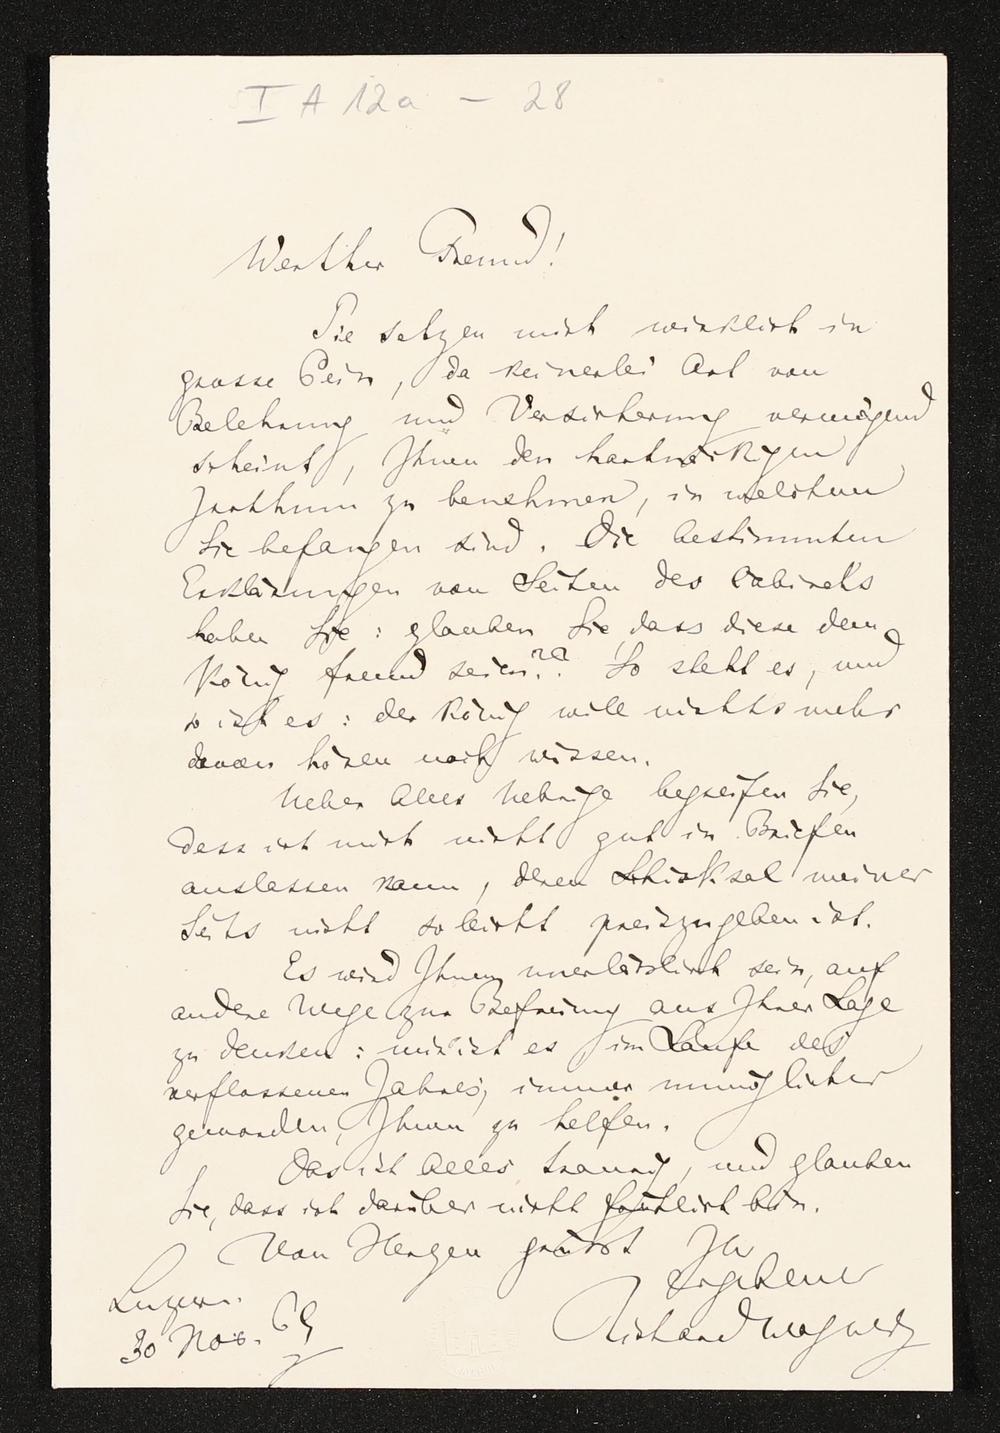 I A 12a – 28
Werther Freund!
Sie setzen mich wirklich in
grosse Pein, da keinerlei Art von
Belehrung und Versicherung vermögend
scheint, Ihnen den hartnäckigen
Irrthum zu benehmen, in welchem
Sie befangen sind. Die bestimmten
Erklärungen von Seiten des Cabinets
haben Sie: glauben Sie dass diese dem
König fremd seien?? So steht es, und
so ist es: der König will nichts mehr
davon hören noch wissen.
Ueber alles Uebrige begreifen Sie,
dass ich mich nicht gut in Briefen
auslassen kann, deren Schicksal meiner
Seits nicht so leicht preiszugeben ist.
Es wird Ihnen unerlässlich sein, auf
andere Wege zur Befreiung aus Ihrer Lage
zu denken: mir ist es im Laufe des
verflossenen Jahres, immer unmöglicher
geworden, Ihnen zu helfen.
Das ist Alles traurig, und glauben
Sie, dass ich darüber nicht fröhlich bin.
Von Herzen grüsst Ihr
ergebener
Luzern.
30 Nov. 69
Richard Wagner